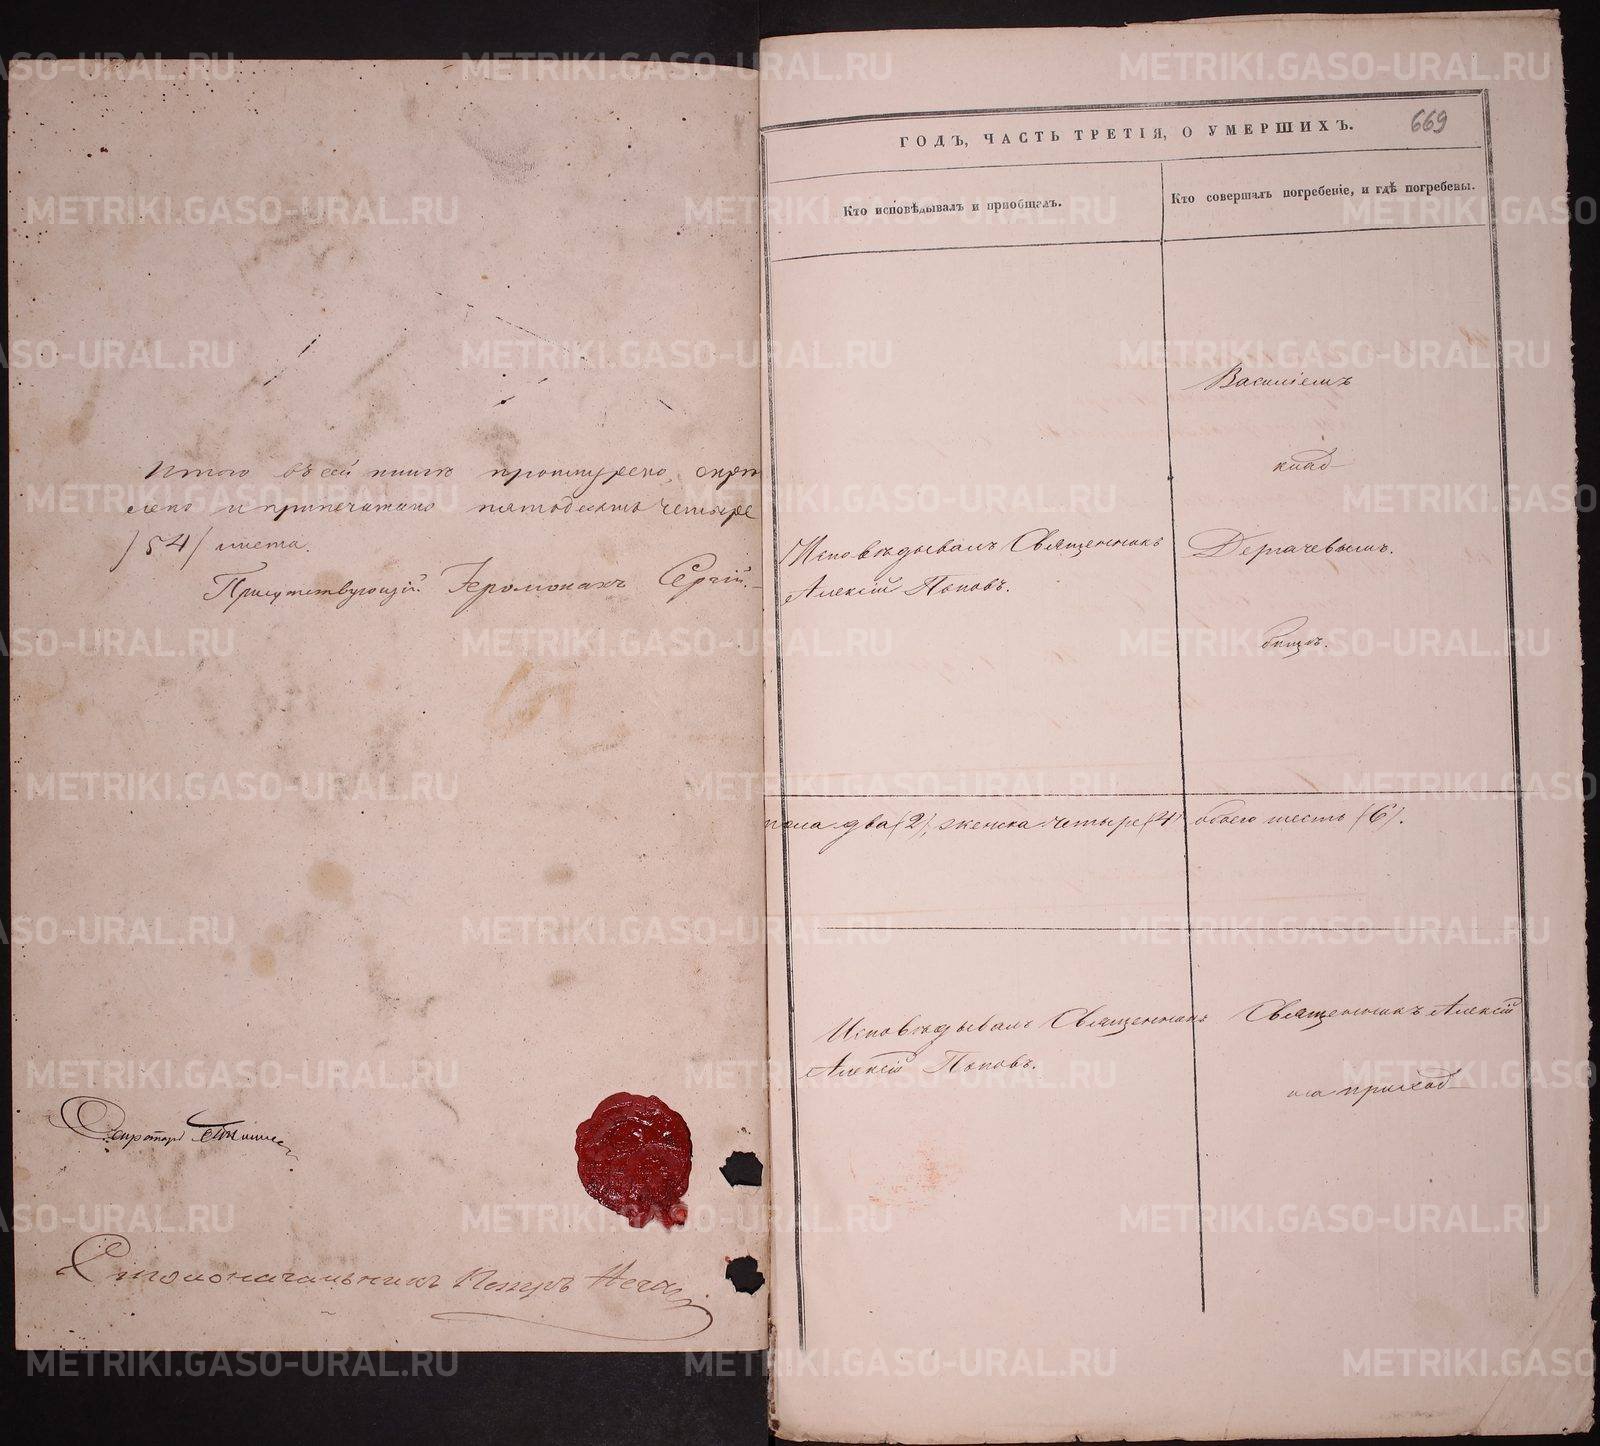 Итого въ сей книгѣ прошнурено, скрѣп
лено и припечатано пятьдесятъ четыре
/54/ листа.
Присутствующій Іеромонахъ Сергій.
Секретарь
Столоначальникъ Петръ
669
ГОДЪ, ЧАСТЬ ТРЕТІЯ, О УМЕРШИХЪ.
Кто исповѣдывалъ и пріобщалъ.
Кто совершалъ погребеніе, и гдѣ погребены.
Василіемъ
клад-
Исповѣдывалъ Священникъ
Алексій Поповъ.
Дергачевымъ.
бищѣ.
пола два (2), женска четыре (4) обоего шесть (6).
Исповѣдывалъ Священникъ
Алексій Поповъ.
Священникъ Алексій
на приход-
METRIKI.GASO-URAL.RU